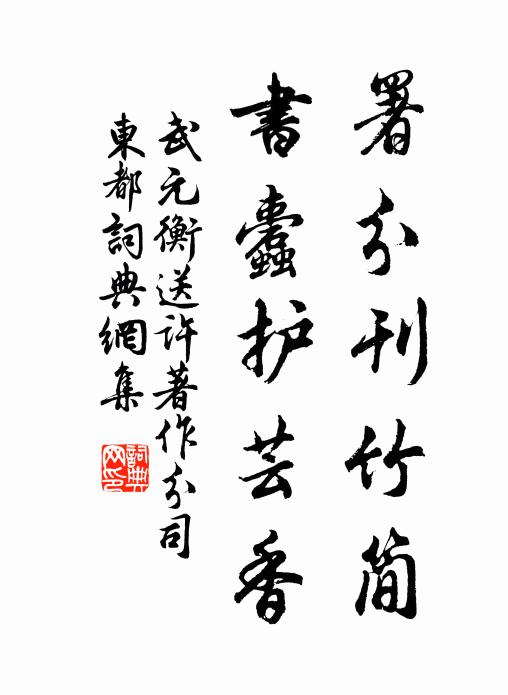 署分刊竹简
書蠹护芸香
武元衡送许著作分司
東都詞典網集
詞典
网印